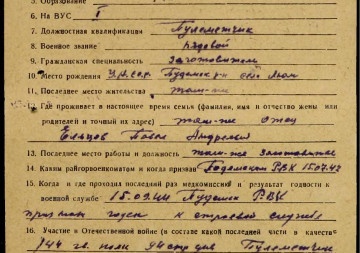 5. Образование
6. На ВУС I
7. Должностная квалификация Пулеметчик
8. Военное звание рядовой
9. Гражданская специальность Заготовитель
10. Место рождения село
11. Последнее место жительства там-же
12. Где проживает в настоящее время семья (фамилия, имя и отчество жены или
родителей и точный их адрес) там-же Отец
Павел Андреевич
13. Последнее место работы и должность там-же Заготовитель
14. Каким райгорвоенкоматом и когда призван РВК 15.07.42
15. Когда и где проходил последний раз медкомиссию и результат годности к
военной службе 15.09.44 РВК
признан годен к строевой службе
16. Участие в Отечественной войне (в составе какой последней части в качестве
144 гв. полк 49 стр див Пулеметчик